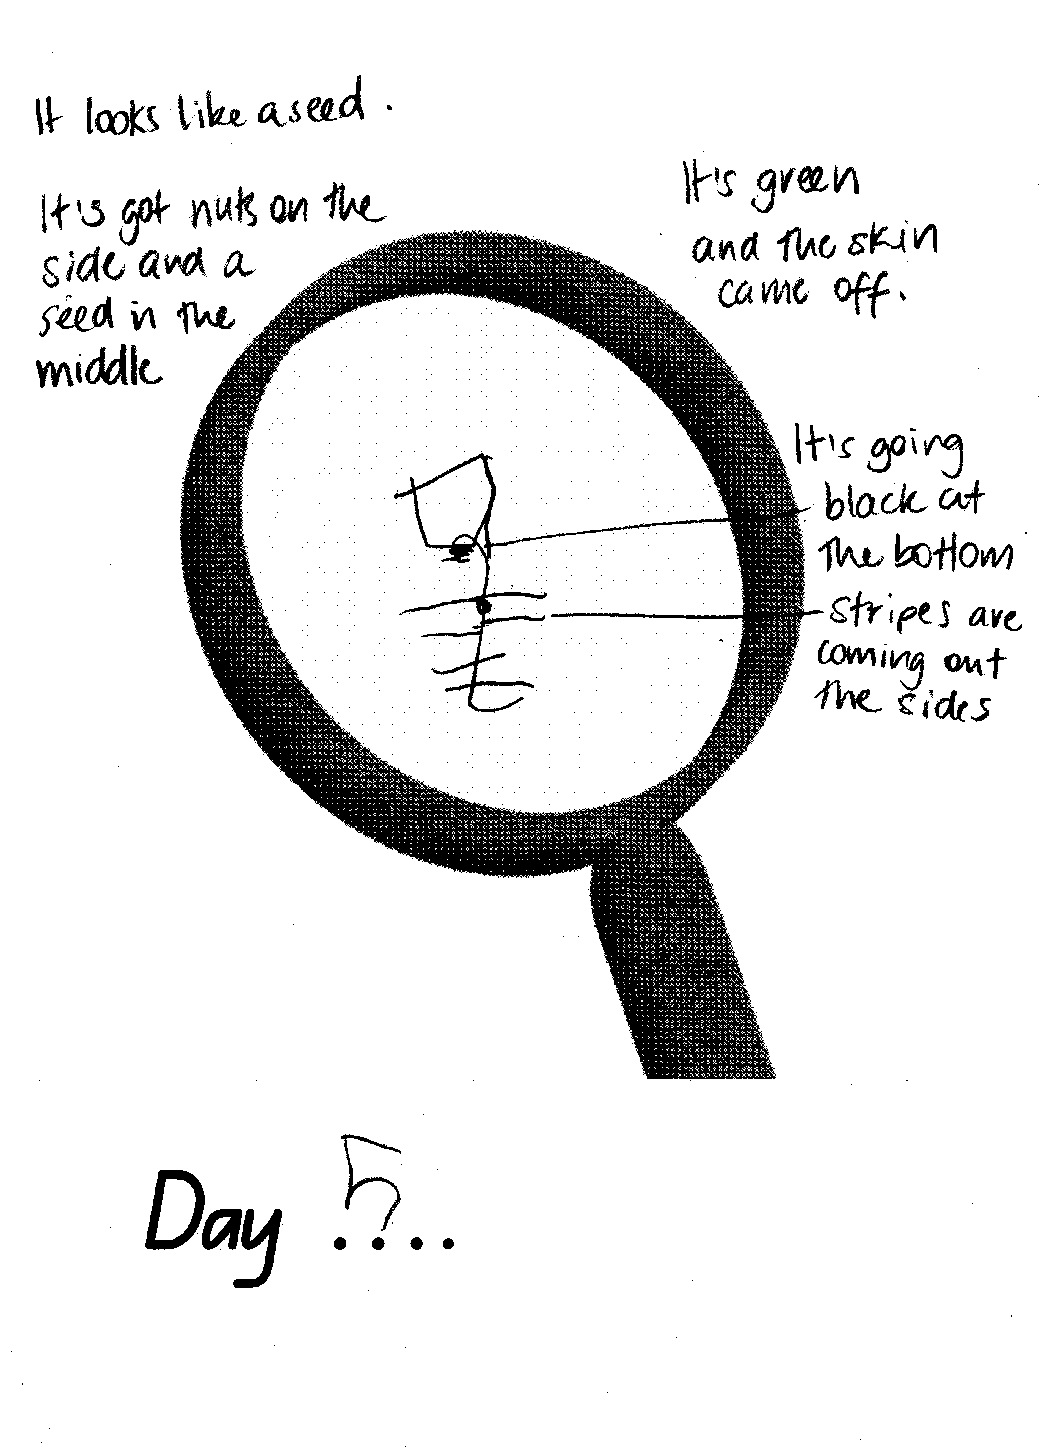 It looks like a seed.
It's got nuts on the
side and a
seed in the
middle
It's green
and the skin
came off.
It's going
black at
the bottom
stripes are
coming out
the sides
Day 5....